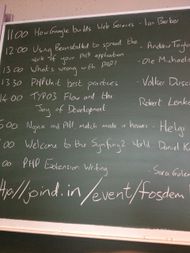 11:00 How Google builds Web Services - Ian Barber
12:00 Using Beanstalkd to spread the - Andrew Tayl
work of your PHP application
13:00 What's wrong with PHP? - Ole Michaeli
13:30 PHPUnit best practices Volker Dusch
14:00 TYPO3 Flow and the Robert Lemke
Joy of Development
5:00 Nginx and PHP, match made in heaven - Helgi
:00 Welcome to the Symfony2 World Daniel K
:00 PHP Extension Writing - Sara Golem
http://joind.in/event/fosdem